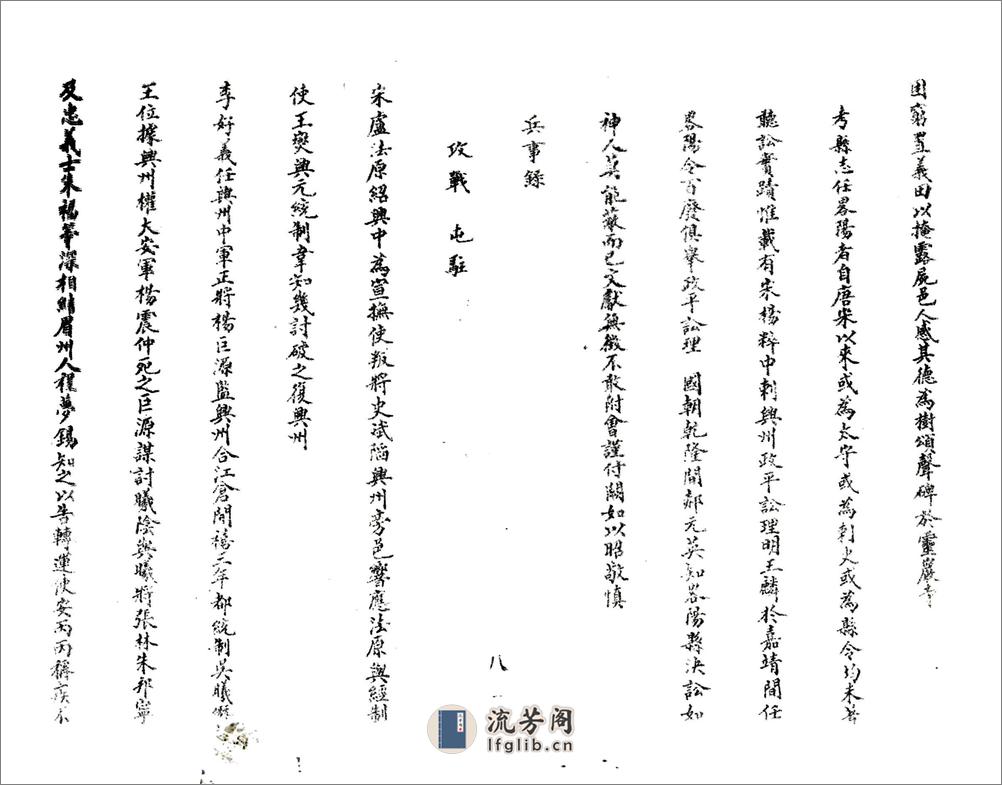 困窮置義田以掩露屍邑人感其德為樹頌聲碑於靈巖寺
考縣志任畧陽者自唐宋以來或為太守或為刺史或為縣令均未著
聽訟實蹟惟載有宋楊粹中刺興州政平訟理明王麟於嘉靖間任
畧陽令百廢俱舉政平訟理 國朝乾隆間郝元英知畧陽縣決訟如
神人莫能蔽而已文獻無徵不敢附會謹付闕如以昭敬慎
兵事錄
攻戰 屯駐
宋盧法原紹興中為宣撫使叛將史斌陷興州旁邑響應法原與經制
使王燮興元統制韋知幾討破之復興州
李好義任興州中軍正將楊巨源監興州合江倉開禧二年都統制吳曦僭
王位據興州權大安軍楊震仲死之巨源謀討曦陰與曦將張林朱邦寧
及忠義士朱福等深相結眉州人程夢錫知之以告轉運使安丙丙稱疾不
八
流芳阁
lfglib.cn